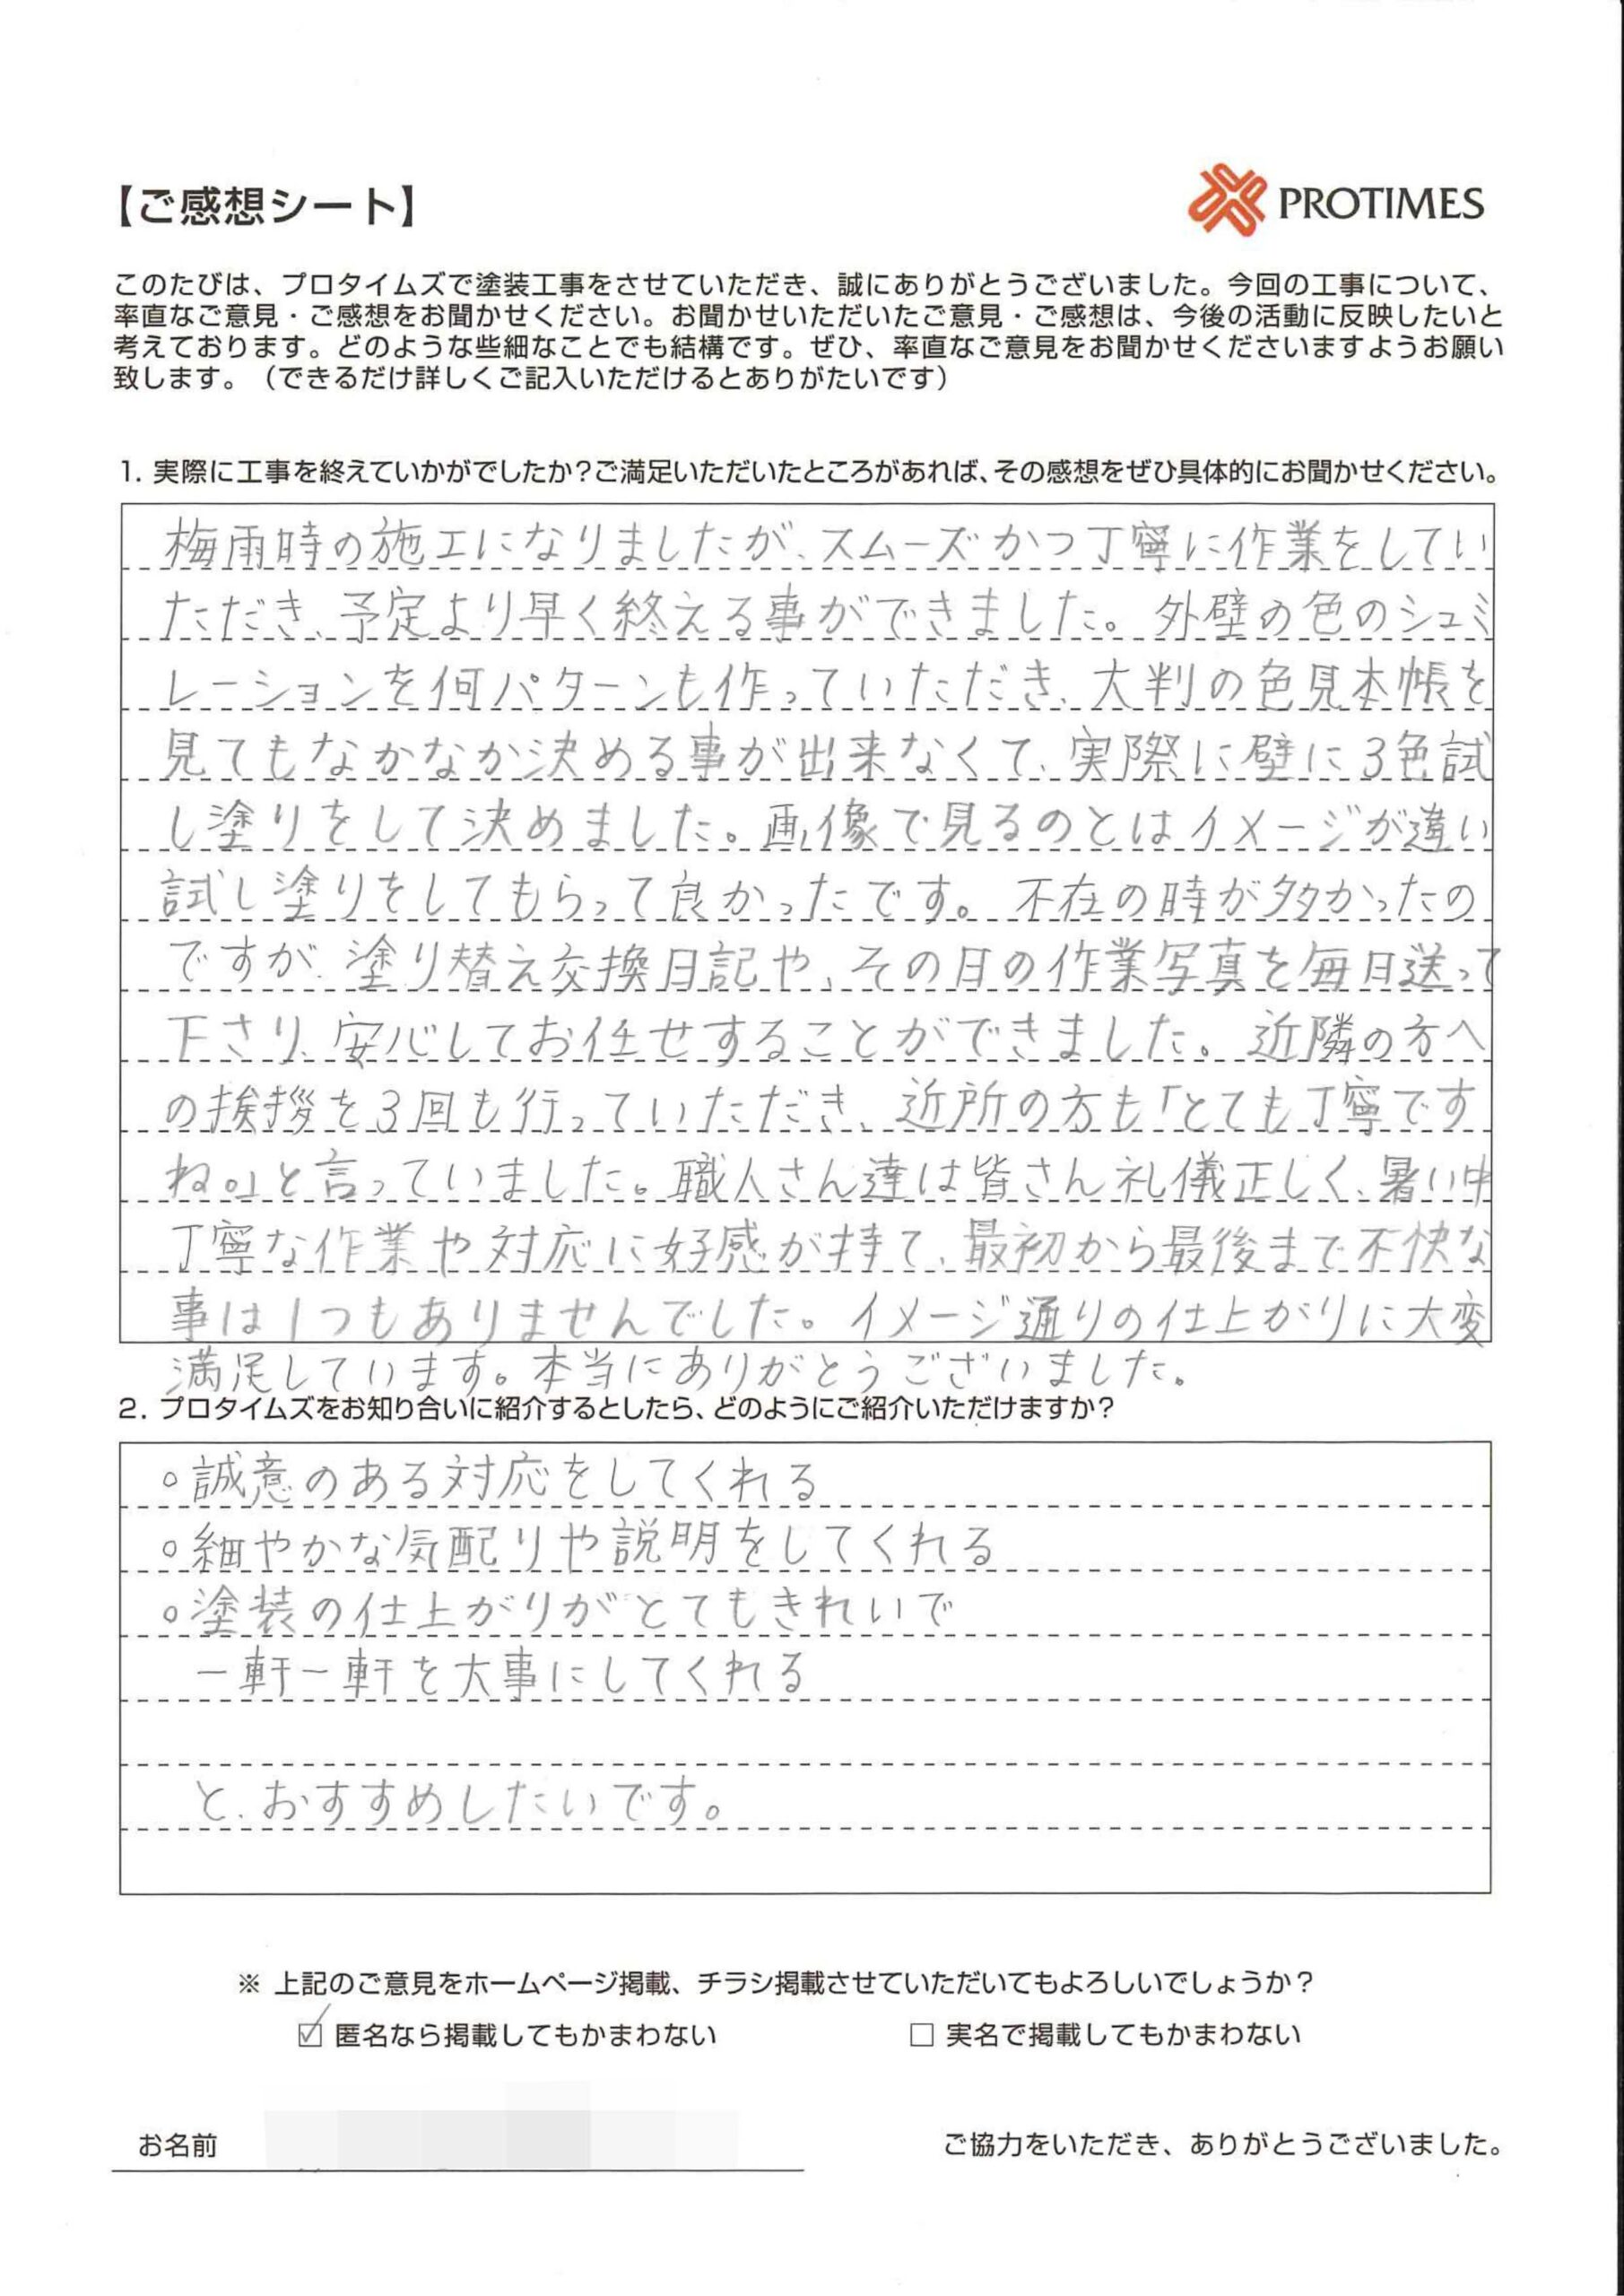 【ご感想シート】
PROTIMES
このたびは、プロタイムズで塗装工事をさせていただき、誠にありがとうございました。今回の工事について、
率直なご意見・ご感想をお聞かせください。お聞かせいただいたご意見・ご感想は、今後の活動に反映したいと
考えております。どのような些細なことでも結構です。ぜひ、率直なご意見をお聞かせくださいますようお願い
致します。（できるだけ詳しくご記入いただけるとありがたいです）
1. 実際に工事を終えていかがでしたか？ご満足いただいたところがあれば、その感想をぜひ具体的にお聞かせください。
梅雨時の施工になりましたが、スムーズかつ丁寧に作業をしてい
ただき、予定より早く終える事ができました。外壁の色のシュミ
レーションを何パターンも作っていただき、大判の色見本帳を
見てもなかなか決める事が出来なくて、実際に壁に3色試
し塗りをして決めました。画像で見るのとはイメージが違い
試し塗りをしてもらって良かったです。不在の時が多かったの
ですが、塗り替え交換日記や、その日の作業写真を毎日送って
下さり、安心してお任せすることができました。近隣の方へ
の挨拶を3回も行っていただき、近所の方も「とても丁寧です
ね。」と言っていました。職人さん達は皆さん礼儀正しく、暑い中
丁寧な作業や対応に好感が持て、最初から最後まで不快な
事は1つもありませんでした。イメージ通りの仕上がりに大変
満足しています。本当にありがとうございました。
2. プロタイムズをお知り合いに紹介するとしたら、どのようにご紹介いただけますか？
○誠意のある対応をしてくれる
○細やかな気配りや説明をしてくれる
○塗装の仕上がりがとてもきれいで
一軒一軒を大事にしてくれる
と、おすすめしたいです。
※ 上記のご意見をホームページ掲載、チラシ掲載させていただいてもよろしいでしょうか？
☑ 匿名なら掲載してもかまわない
□ 実名で掲載してもかまわない
お名前
ご協力をいただき、ありがとうございました。